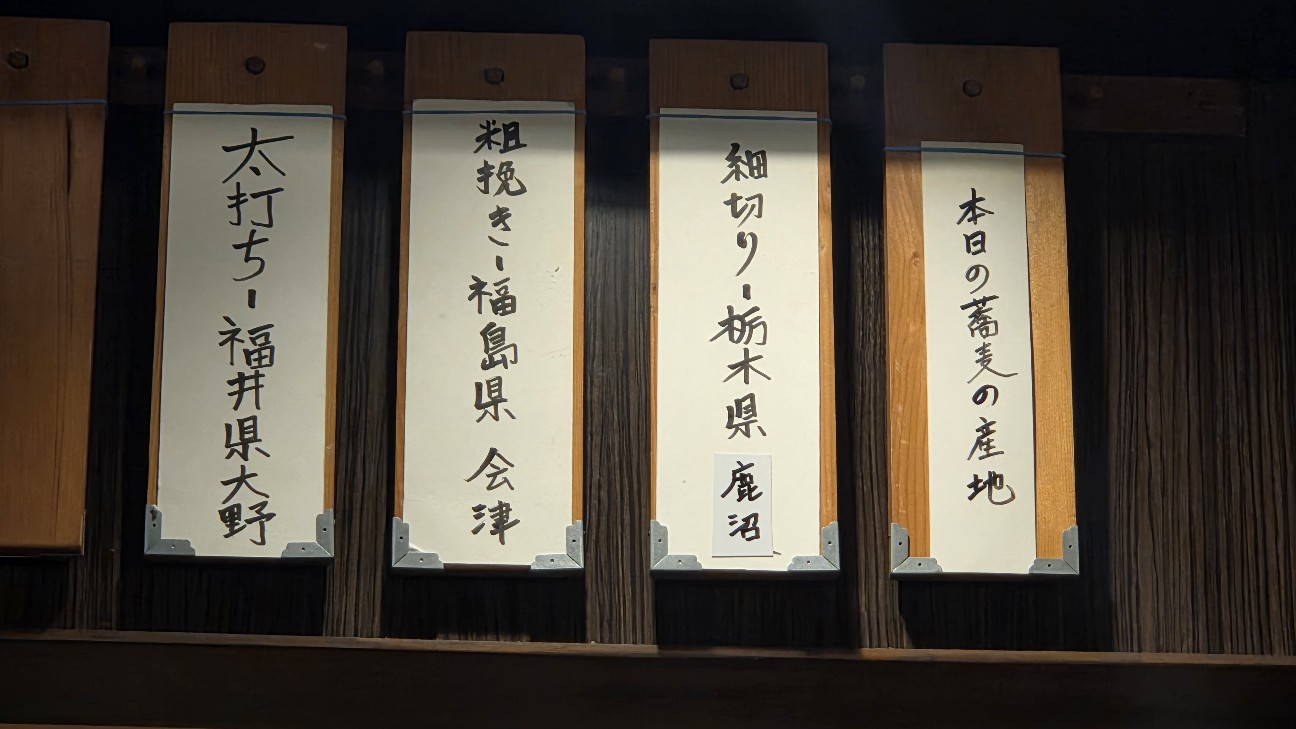 本日の蕎麦の産地
細切り-栃木県 鹿沼
粗挽き-福島県 会津
太打ち-福井県大野